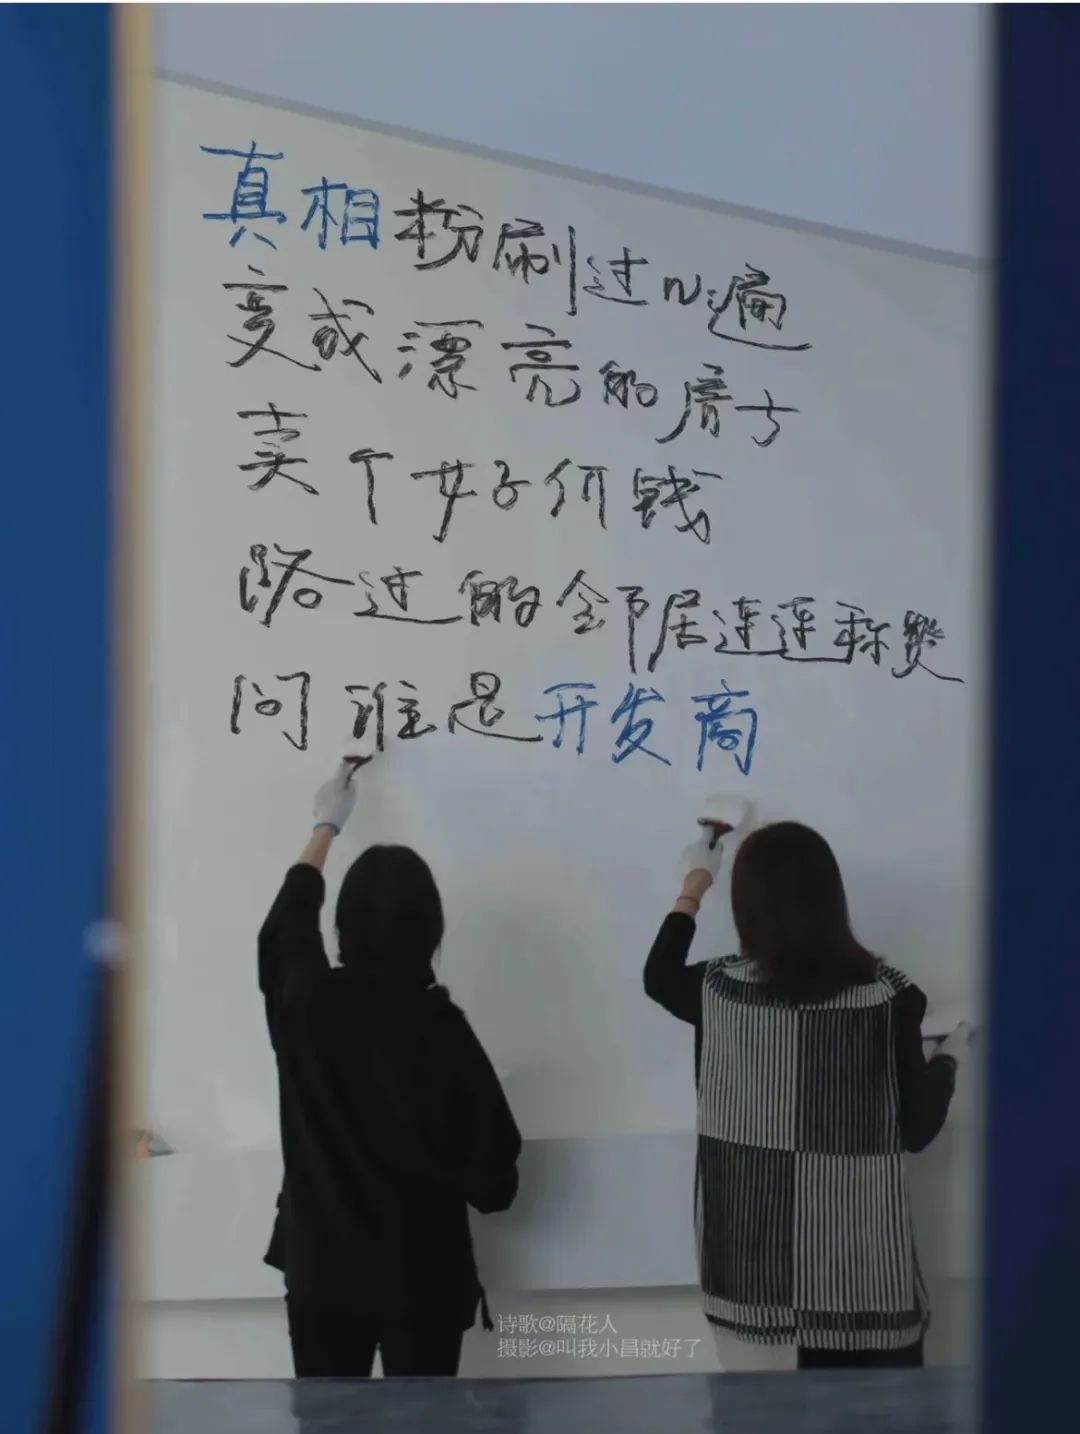 真相粉刷过N遍
变成漂亮的房子
卖个好价钱
路过的邻居连连称赞
问谁是开发商
诗歌@隔花人
摄影@叫我小昌就好了